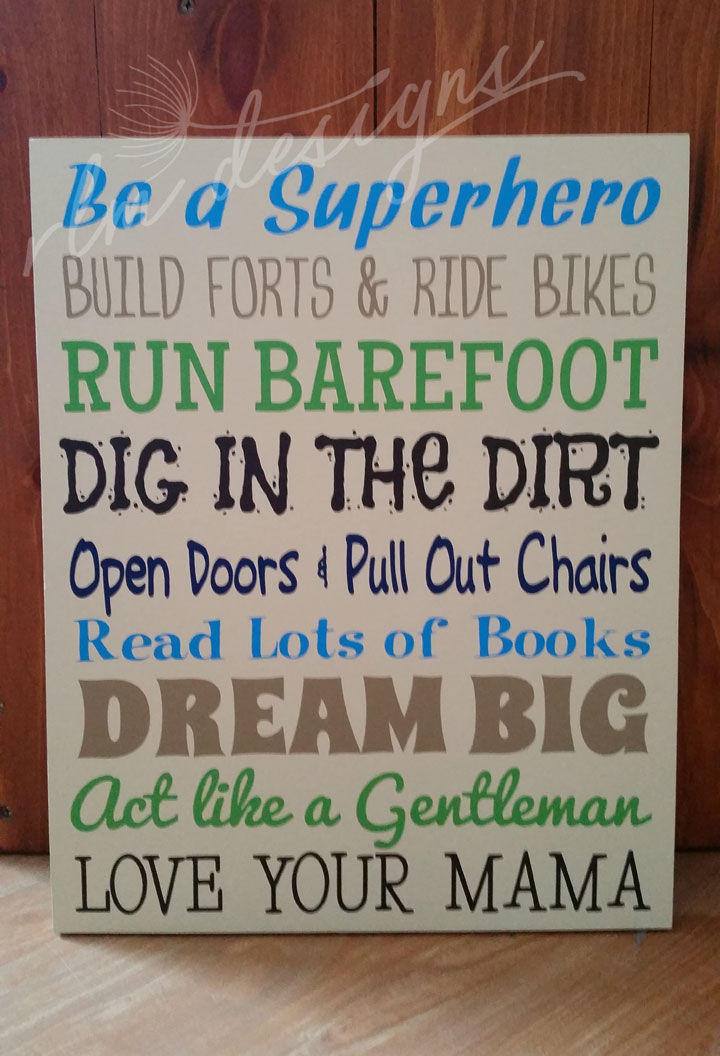 rlm designs
Be a Superhero
BUILD FORTS & RIDE BIKES
RUN BAREFOOT
DIG IN THe DIRT
Open Doors & Pull Out Chairs
Read Lots of Books
DREAM BIG
Act like a Gentleman
LOVE YOUR MAMA